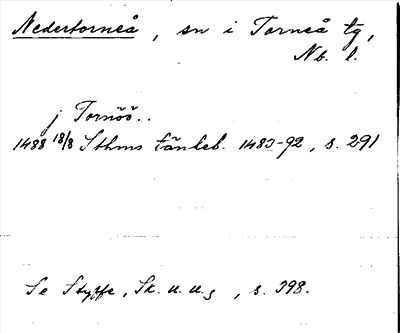 Nedertorneå, sn i Torneå tg,
Nb. l.
j Tornöö..
1488 18/8 Sthms tänkeb. 1483-92, s. 291
Se Styffe, Sk. u. u., s. 398.